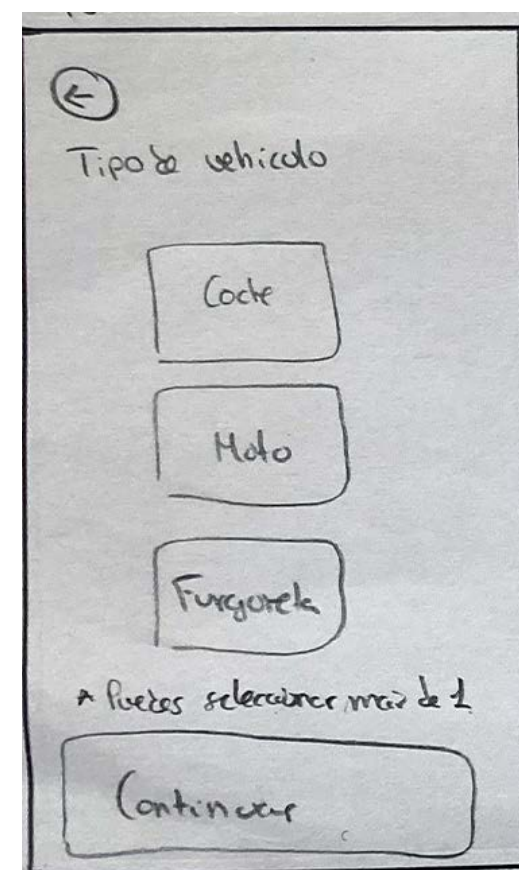 Tipo de vehiculo
Coche
Moto
Furgoneta
* Puedes seleccionar mas de 1
Continuar